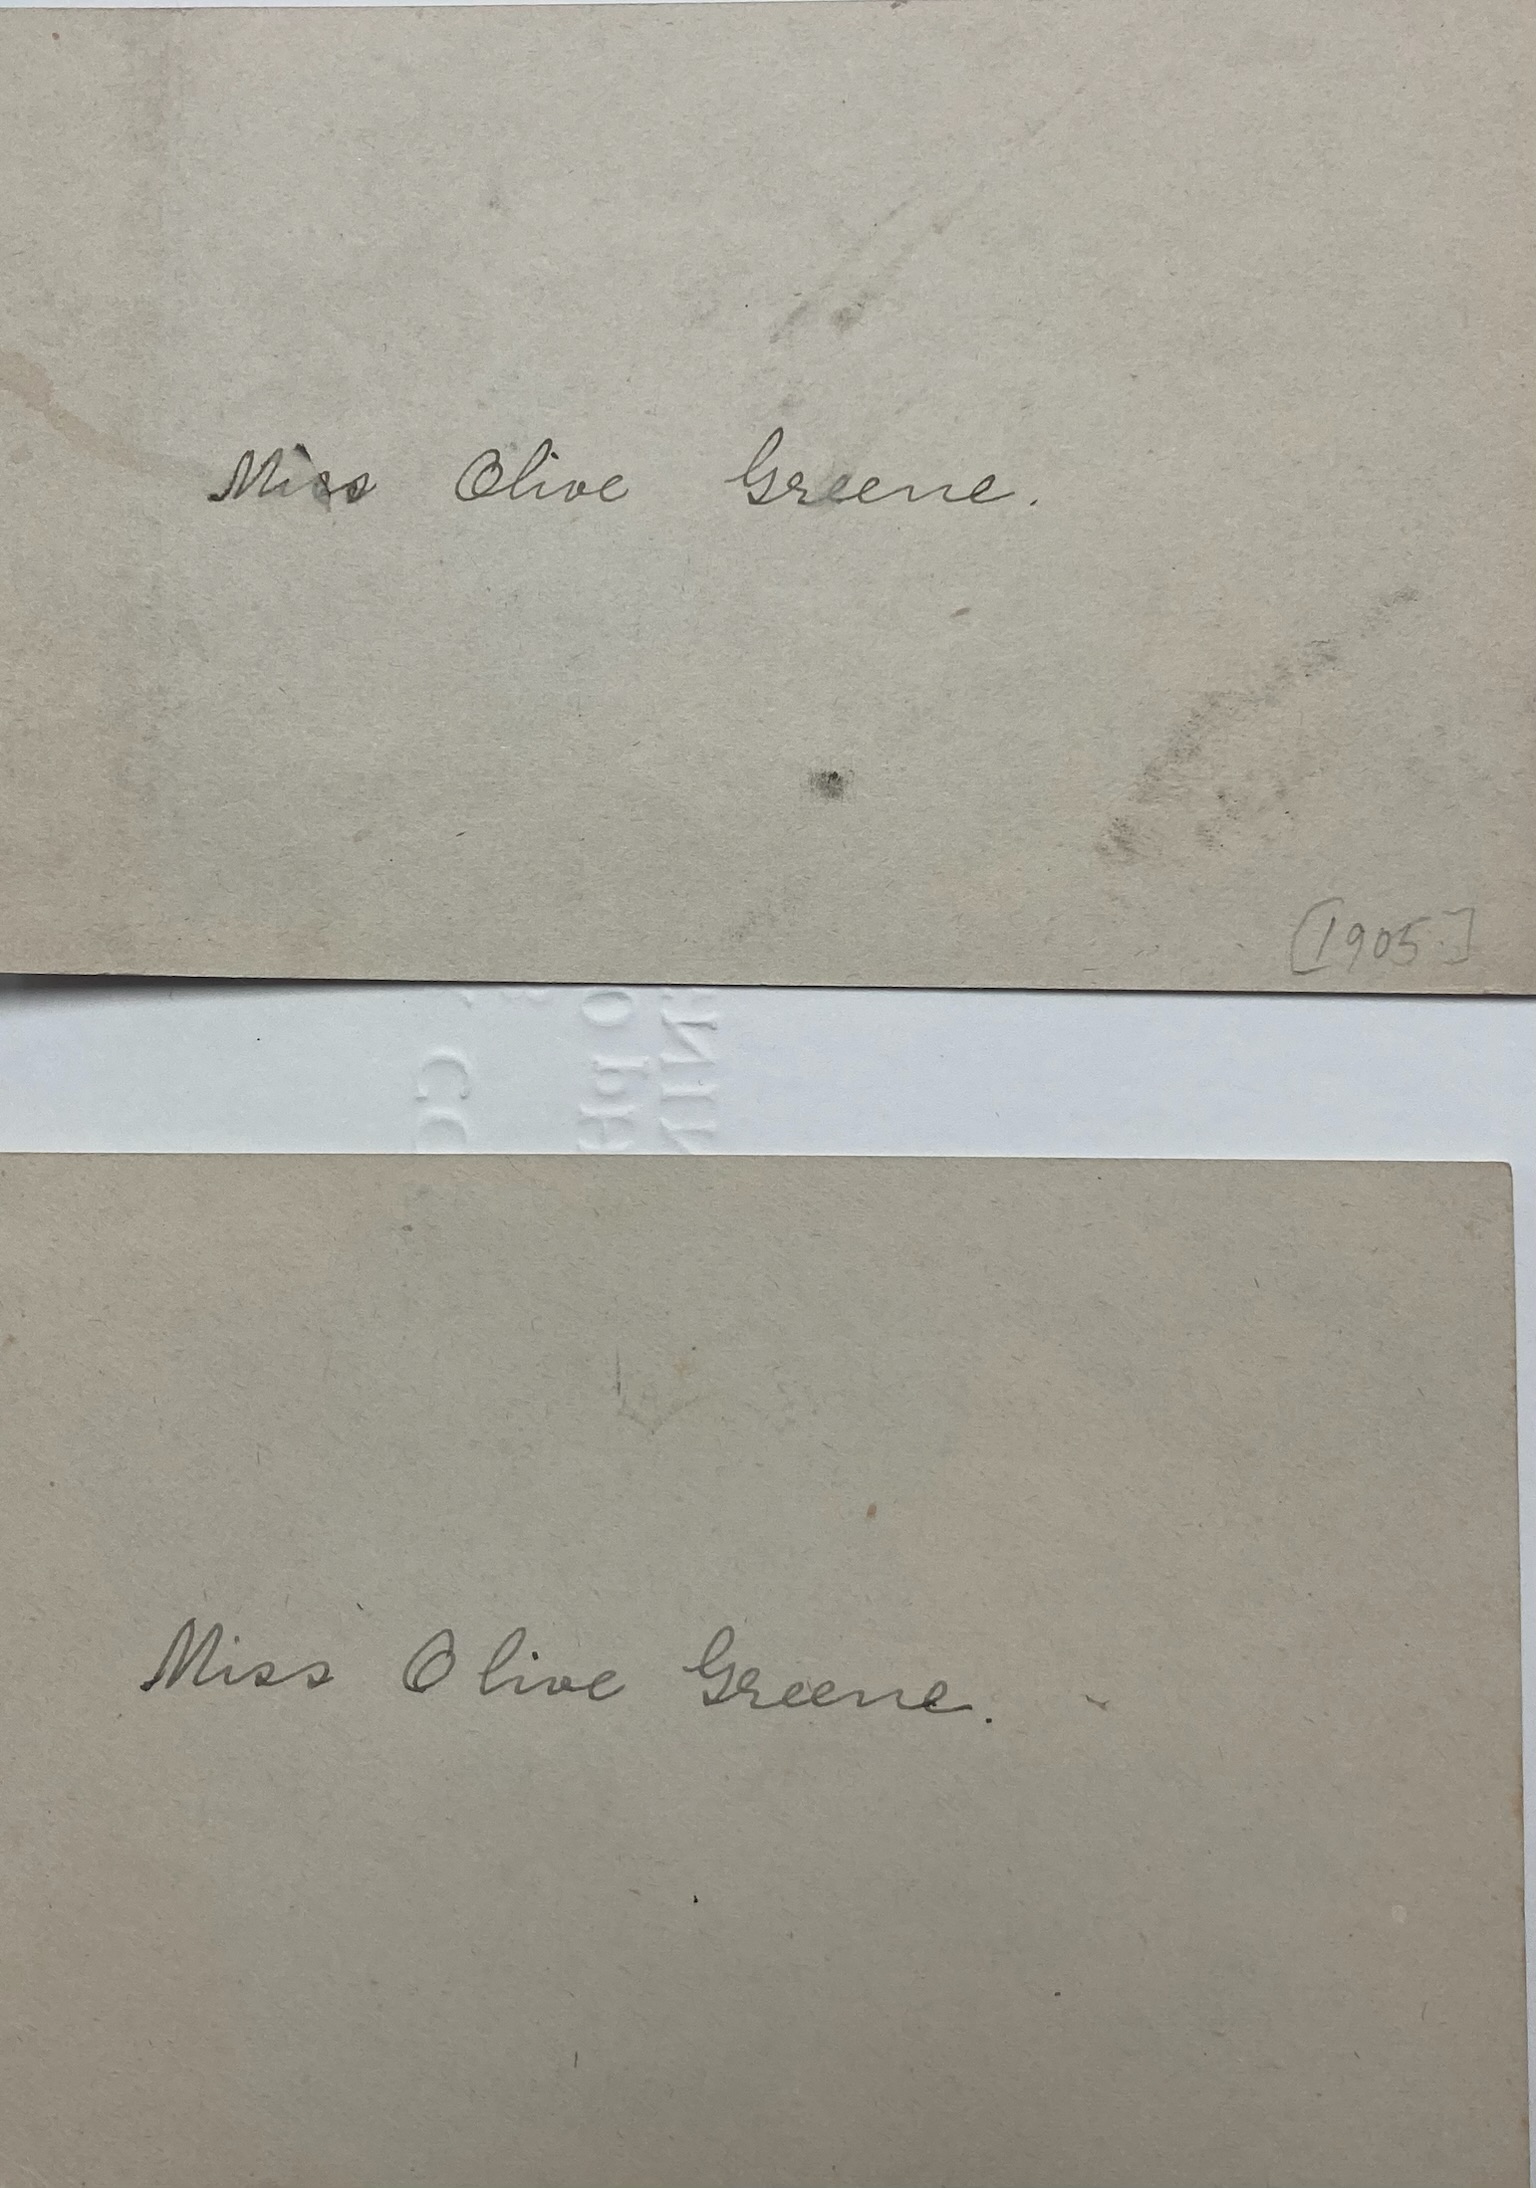 Miss Olive Greene.
[1905.]
Miss Olive Greene.